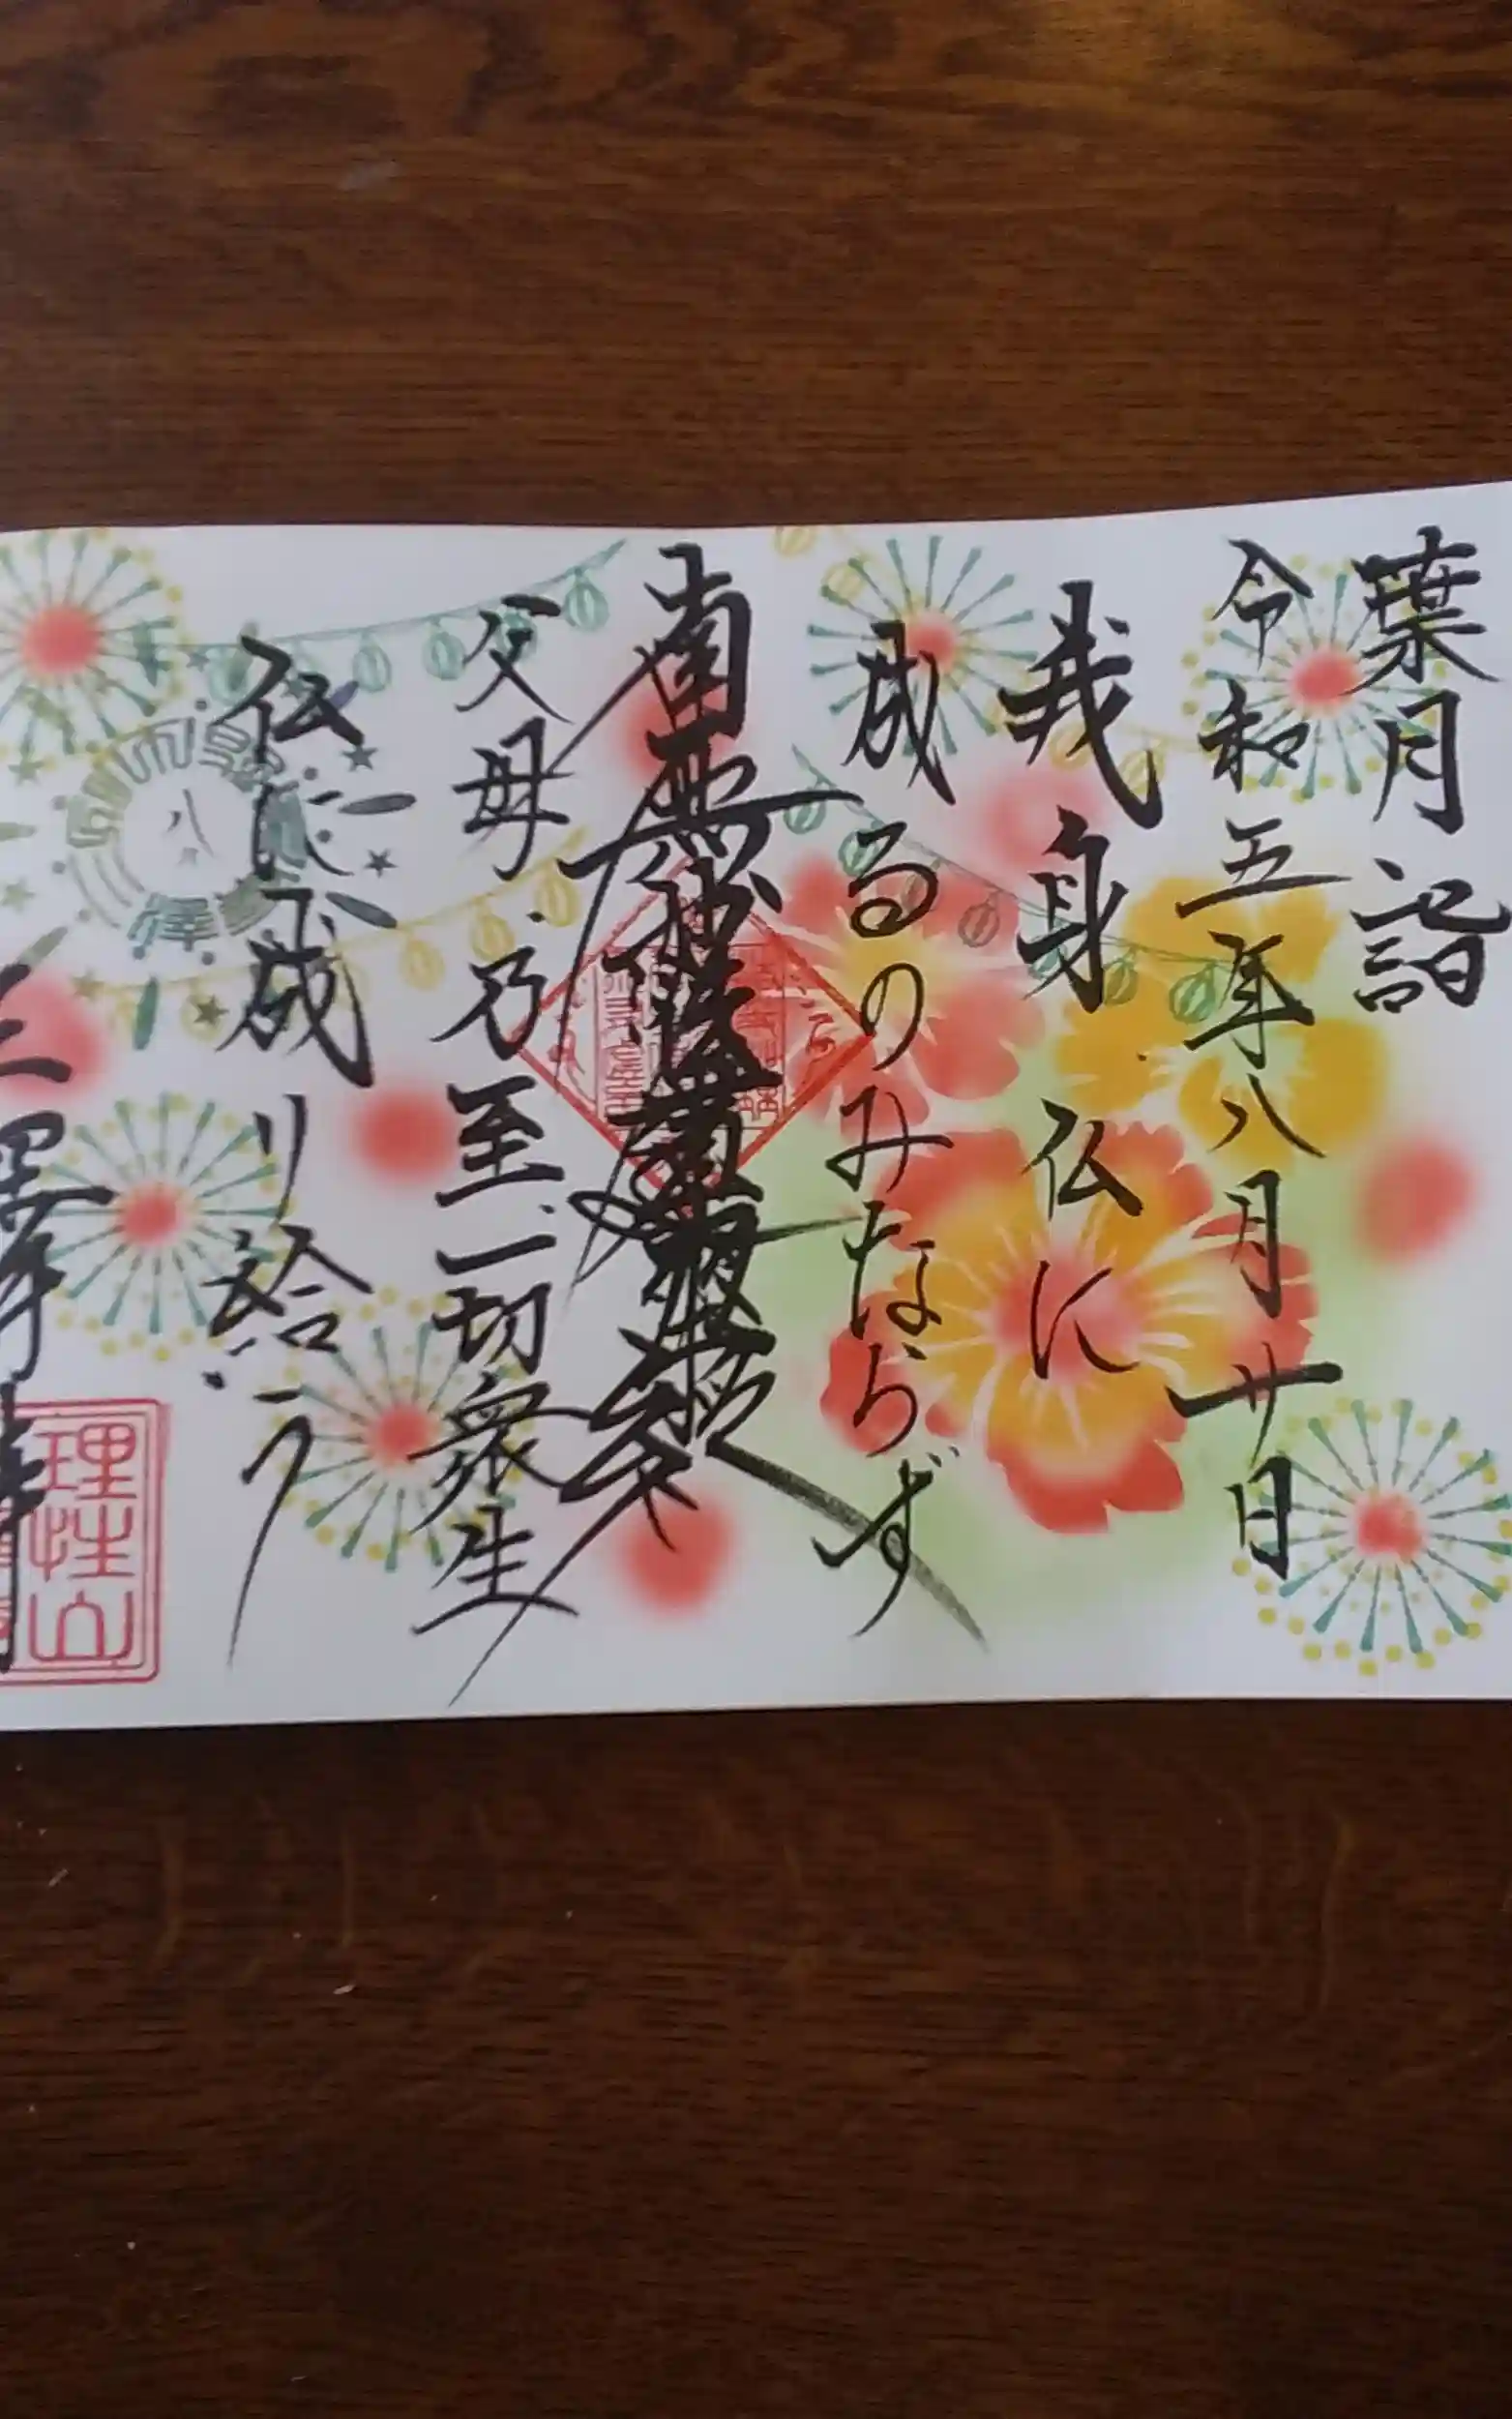 葉月詣
令和五年八月廿日
我身仏に
成るのみならず
南無妙法蓮華経
父母乃至一切衆生
仏に成り給う
八月
理性山